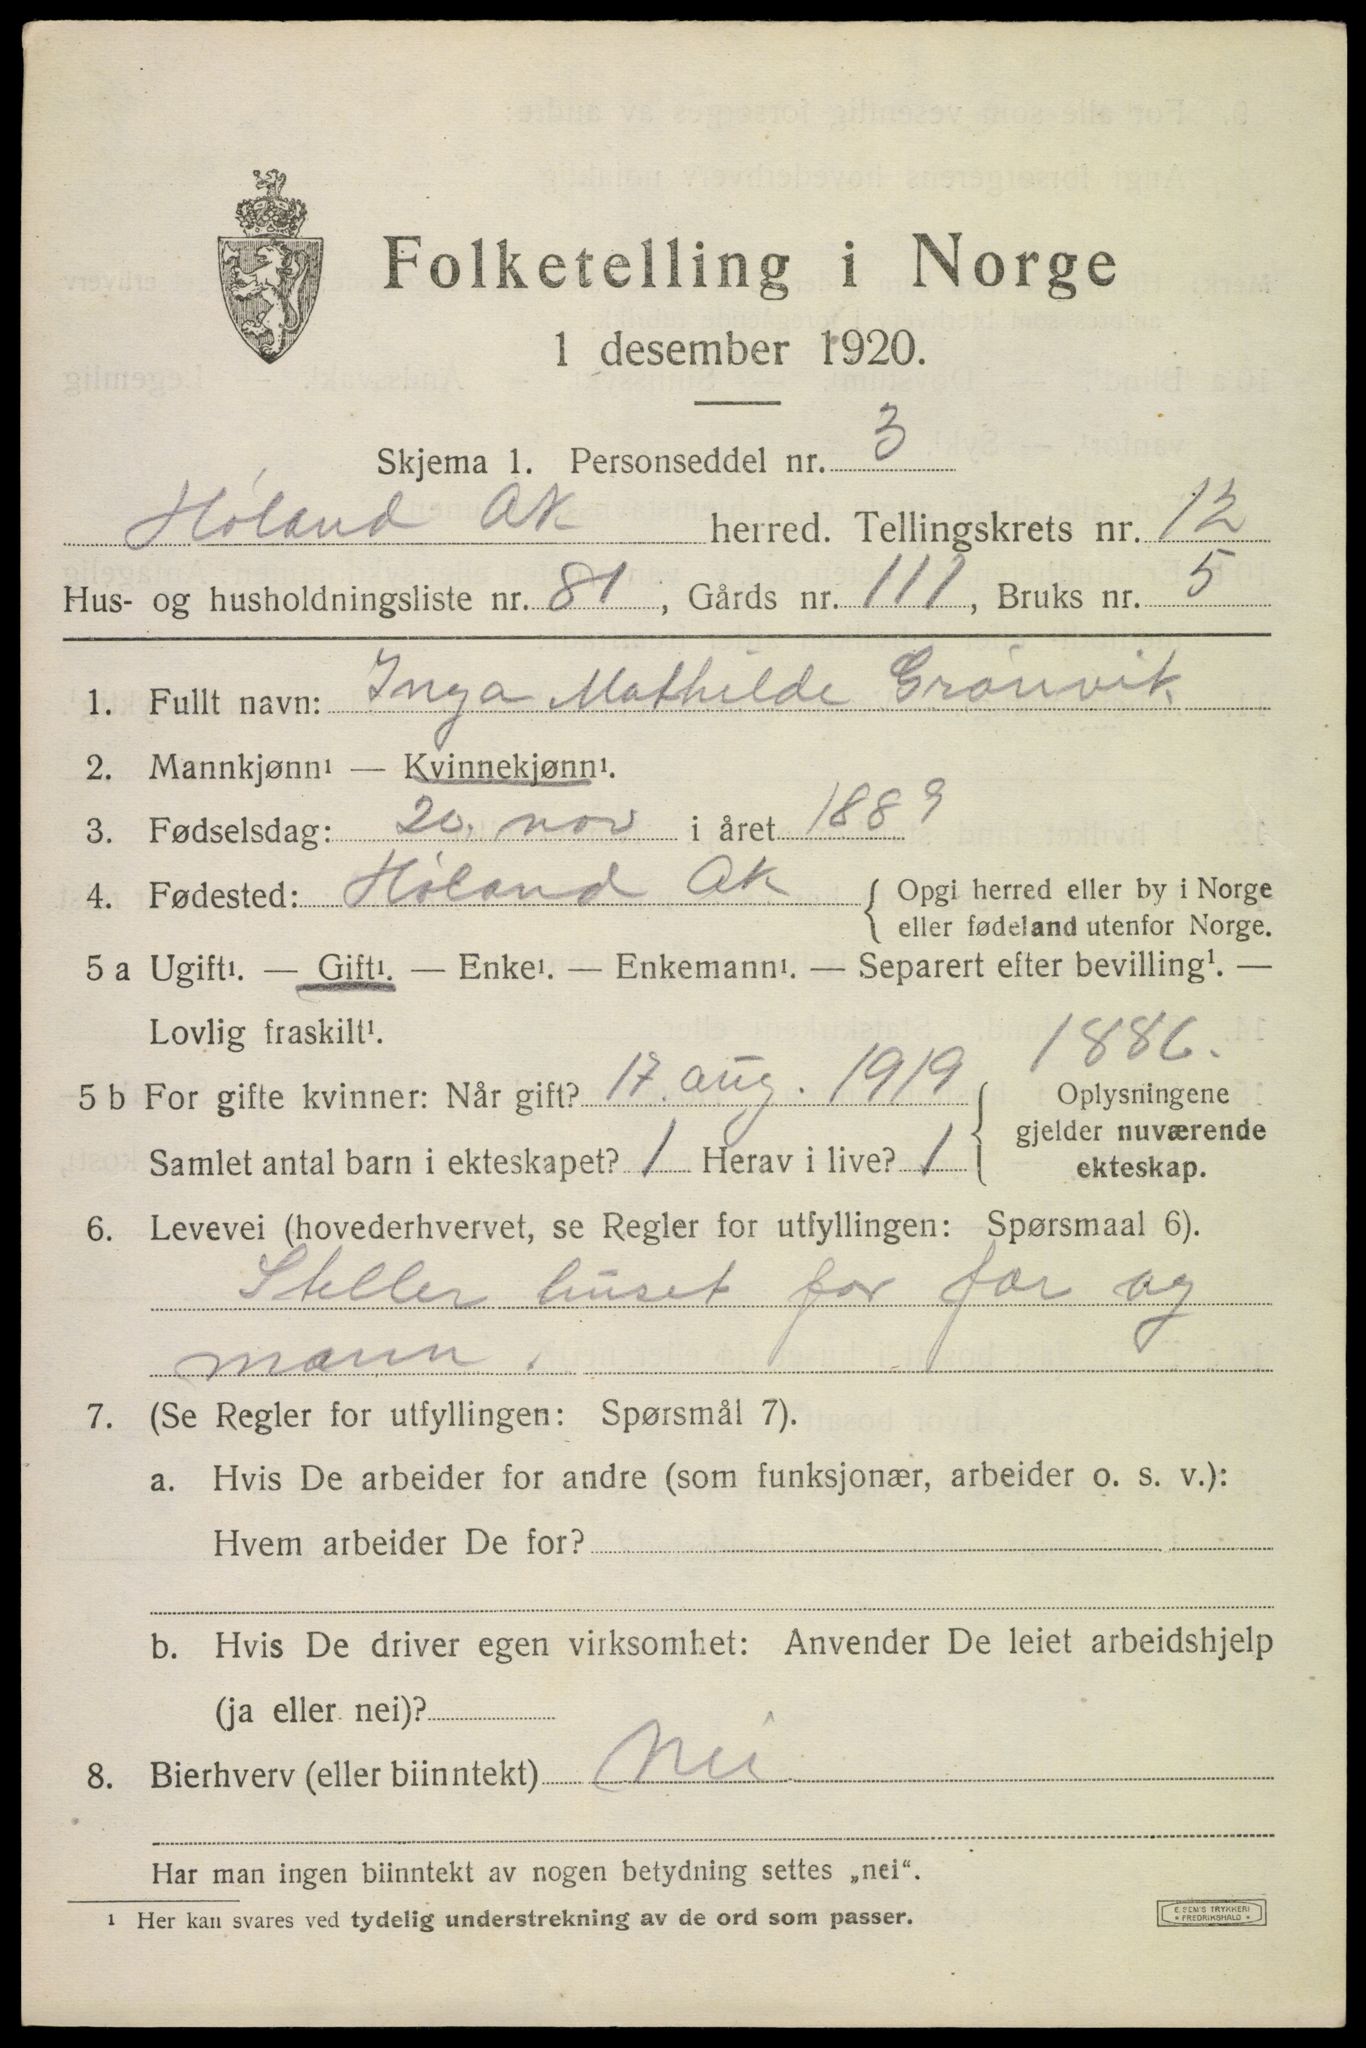 Folketelling i Norge
1 desember 1920.
Skjema 1. Personseddel nr. 3
Høland Ak herred. Tellingskrets nr. 12
Hus- og husholdningsliste nr. 81, Gårds nr. 111, Bruks nr. 5
1. Fullt navn: Inga Mathilde Grønvik
2. Mannkjønn¹ — Kvinnekjønn¹.
3. Fødselsdag: 20. nov i året 1889
4. Fødested: Høland Ak { Opgi herred eller by i Norge
eller fødeland utenfor Norge.
5 a Ugift¹. — Gift¹. — Enke¹. — Enkemann¹. — Separert efter bevilling¹. —
Lovlig fraskilt¹.
1886.
5 b For gifte kvinner: Når gift? 17. aug. 1919
Samlet antal barn i ekteskapet? 1 Herav i live? 1
Oplysningene
gjelder nuværende
ekteskap.
6. Levevei (hovederhvervet, se Regler for utfyllingen: Spørsmaal 6).
Steller huset for far og
mann.
7. (Se Regler for utfyllingen: Spørsmål 7).
a. Hvis De arbeider for andre (som funksjonær, arbeider o. s. v.):
Hvem arbeider De for?
b. Hvis De driver egen virksomhet: Anvender De leiet arbeidshjelp
(ja eller nei)?
8. Bierhverv (eller biinntekt) Nei
Har man ingen biinntekt av nogen betydning settes „nei“.
¹ Her kan svares ved tydelig understrekning av de ord som passer.
E. SEM'S TRYKKERI
* FREDRIKSHALD *